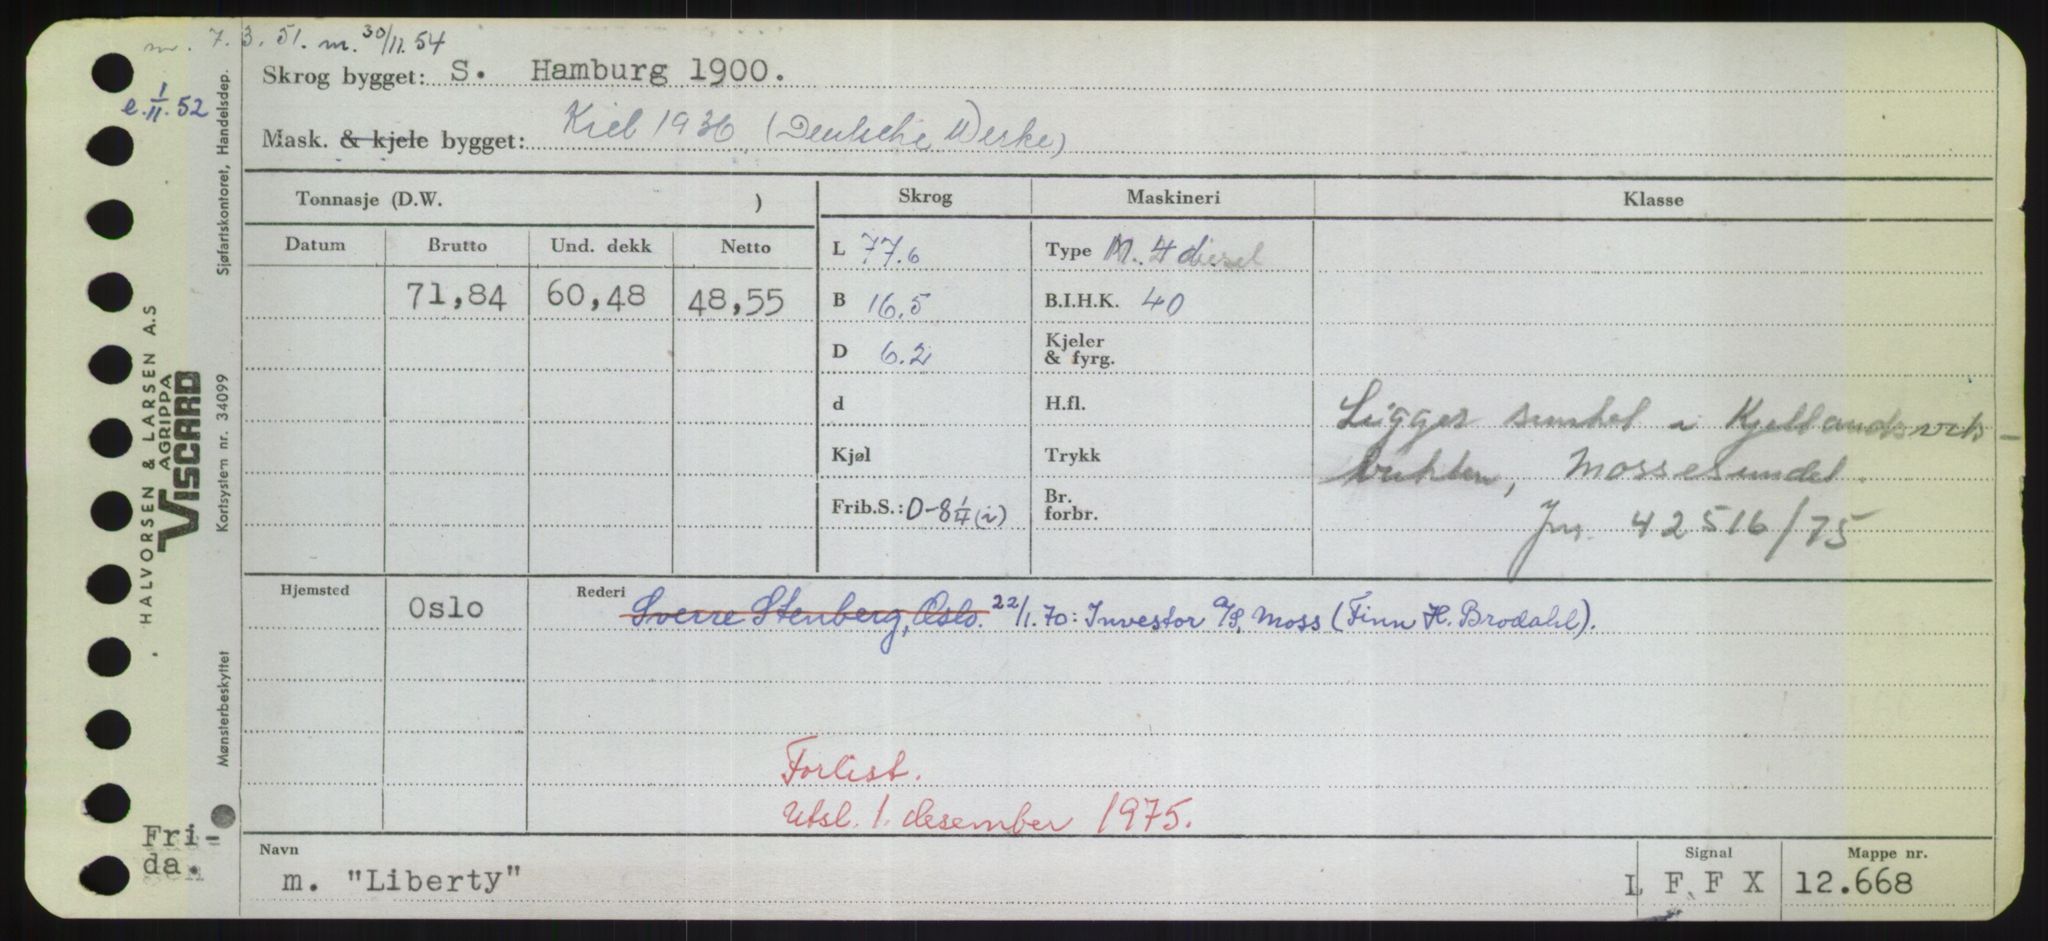 m. 7. 3. 51. m. 30/11. 54
e. 1/11. 52
Skrog bygget: S. Hamburg 1900.
Mask. & kjele bygget: Kiel 1936 (Deutsche Werke)
Tonnasje (D.W. )
Skrog
Maskineri
Klasse
Datum Brutto Und. dekk Netto
71,84 60,48 48,55
L 77.6
B 16.5
D 6.2
d
Kjøl
Frib.S.: 0-8 1/4 (i)
Type M. 4 diesel
B.I.H.K. 40
Kjeler
& fyrg.
H.fl.
Trykk
Br.
forbr.
Ligger sunket i Kjellandsvik-
bukten, Mossesundet.
Jnr. 42516/75
Hjemsted Oslo
Rederi Sverre Stenberg, Oslo. 22/1.70: Investor A/S, Moss (Finn H. Brodahl).
Forlist.
Utsl. 1. desember 1975.
Navn
m. "Liberty"
Signal
L F F X
Mappe nr.
12.668
Fri-
da.
HALVORSEN & LARSEN A.S
AGRIPPA
VISCARD
Sjøfartskontoret, Handelsdep.
Kortsystem nr. 34099
Mønsterbeskyttet